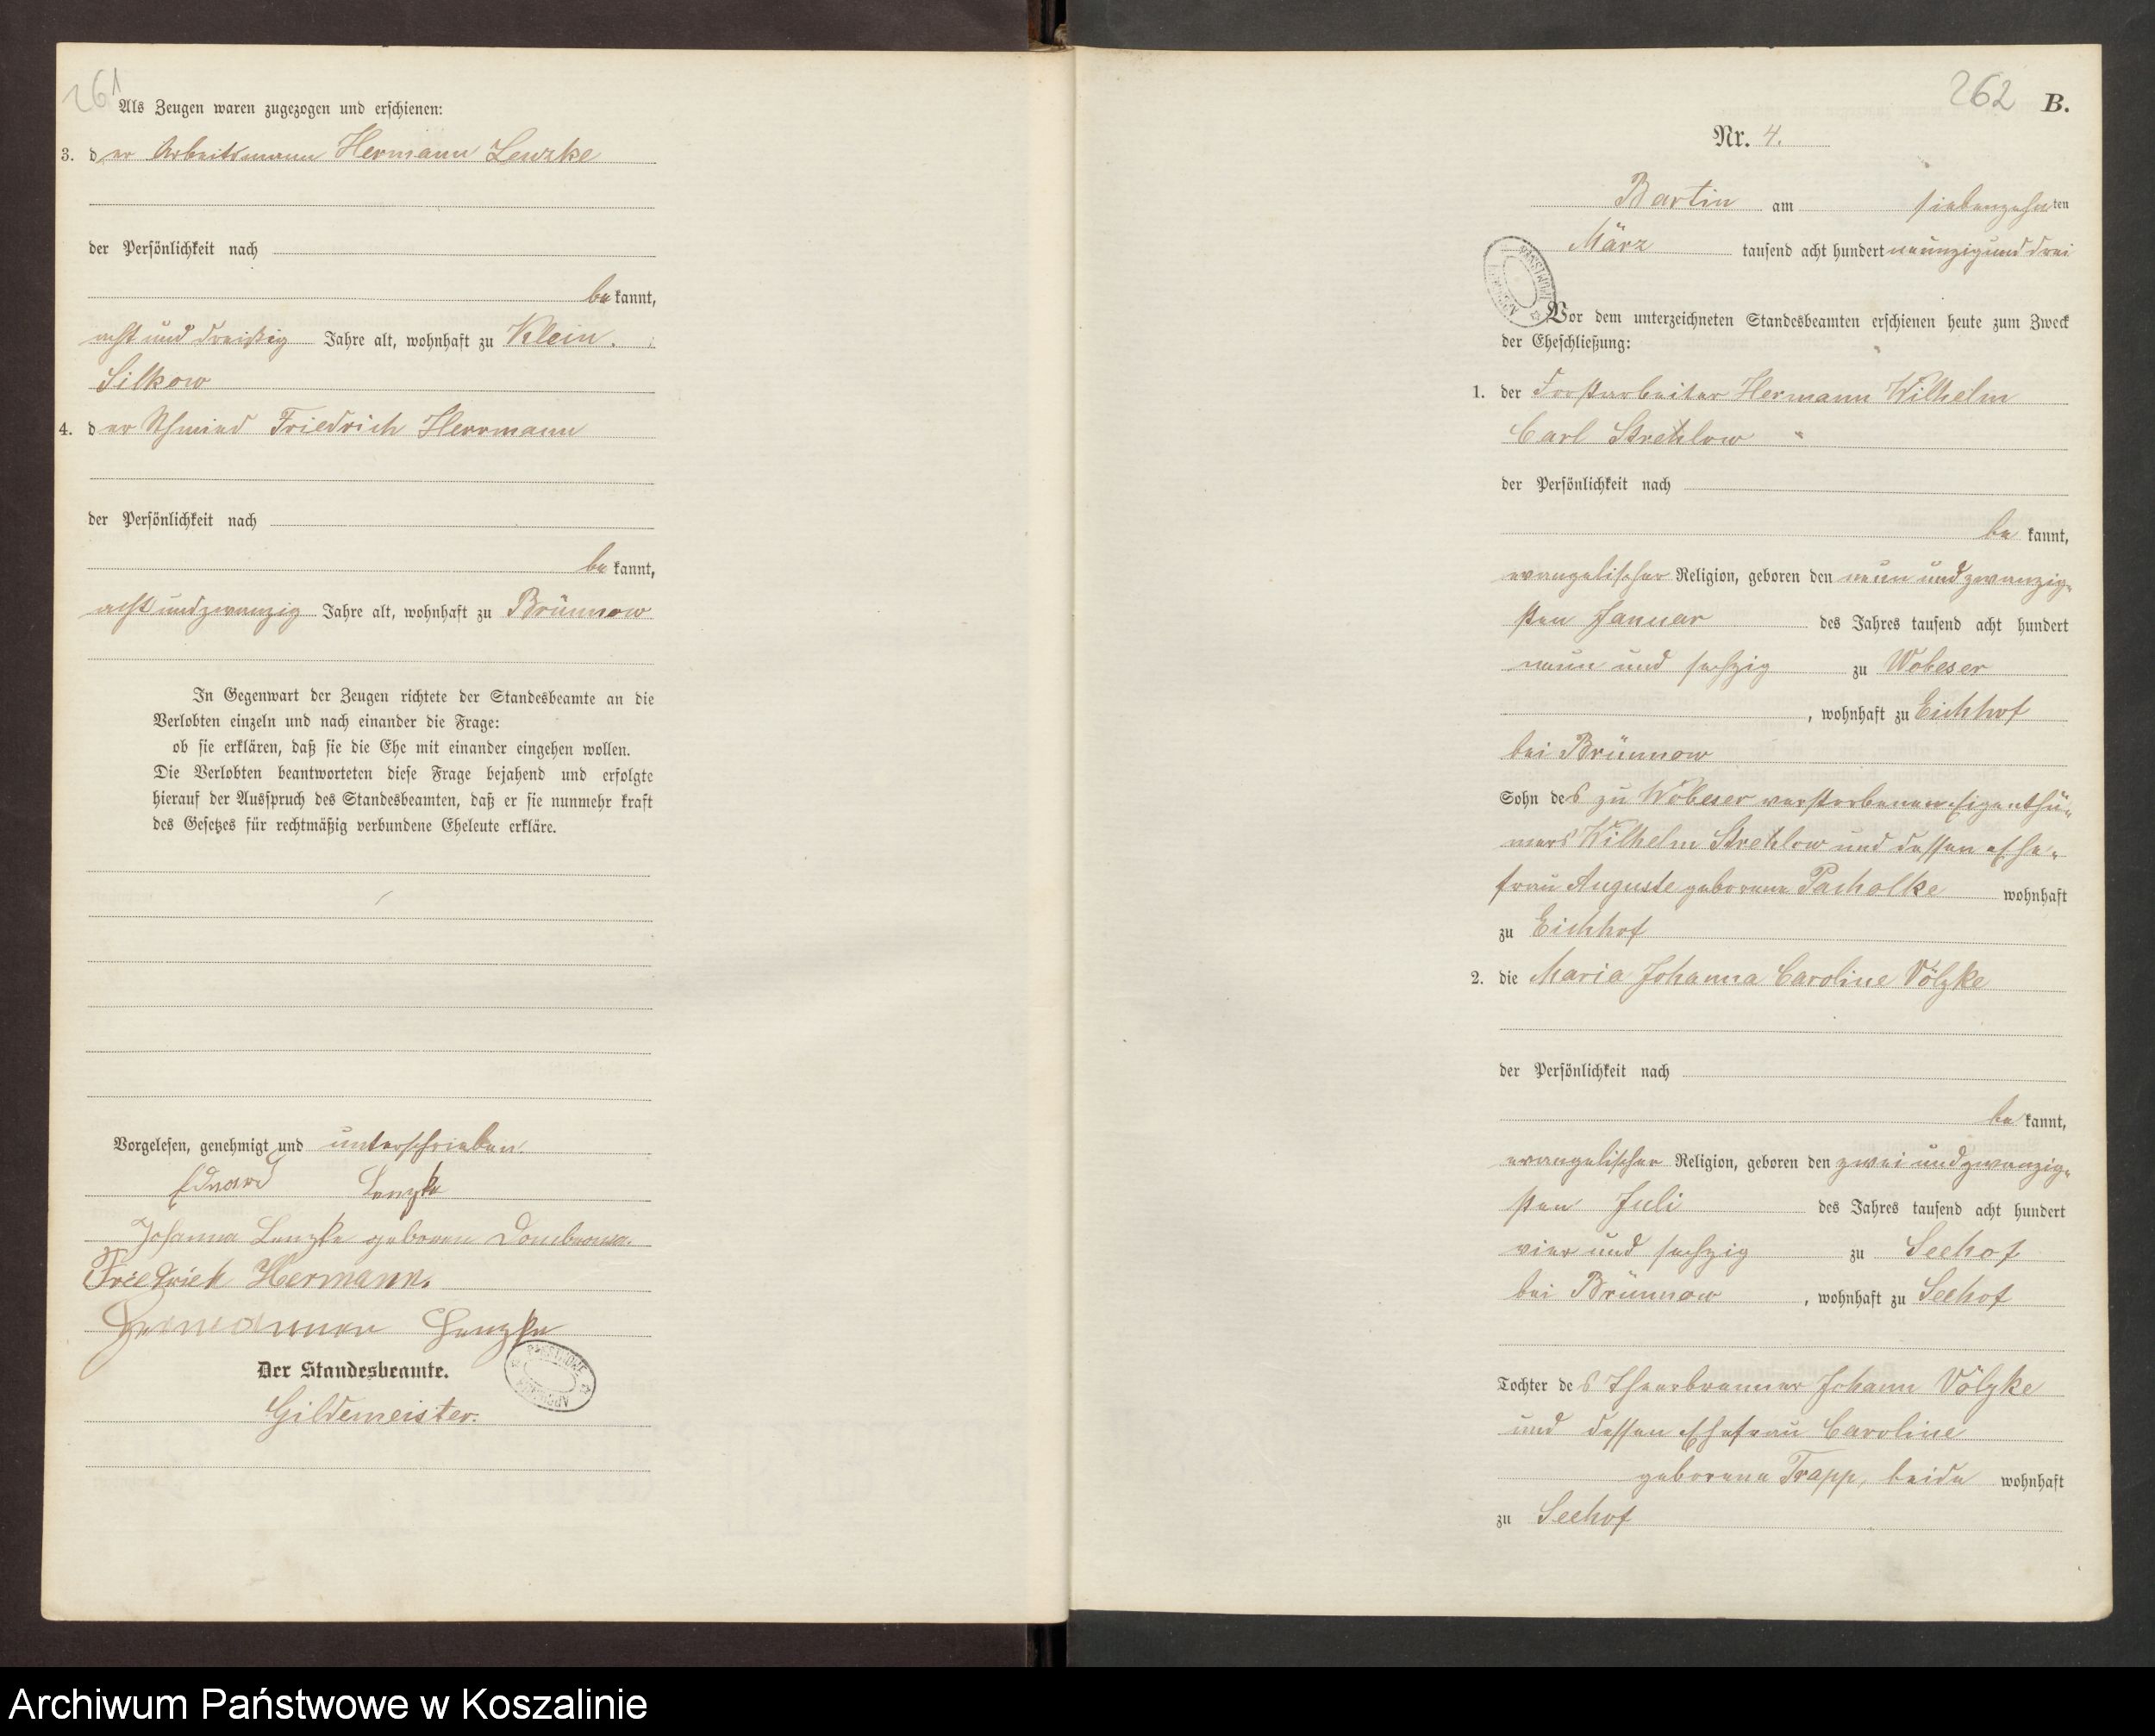 261
Als Zeugen waren zugezogen und erschienen:
3. der Arbeitsmann Hermann Lenzke
der Persönlichkeit nach
bekannt,
acht und dreißig Jahre alt, wohnhaft zu Klein-
Silkow
4. der Schmied Friedrich Herrmann
der Persönlichkeit nach
bekannt,
acht und zwanzig Jahre alt, wohnhaft zu Brünnow
In Gegenwart der Zeugen richtete der Standesbeamte an die
Verlobten einzeln und nach einander die Frage:
ob sie erklären, daß sie die Ehe mit einander eingehen wollen.
Die Verlobten beantworteten diese Frage bejahend und erfolgte
hierauf der Ausspruch des Standesbeamten, daß er sie nunmehr kraft
des Gesetzes für rechtmäßig verbundene Eheleute erkläre.
Vorgelesen, genehmigt und unterschrieben.
Eduard Lenzke
Johanna Lenzke geboren
Friedrich Hermann.
Lenzke
Der Standesbeamte.
Gildemeister.
262 B.
Nr. 4.
Bartin am siebenzehnten
März tausend acht hundert neunzig und drei
Vor dem unterzeichneten Standesbeamten erschienen heute zum Zweck
der Eheschließung:
1. der Forstarbeiter Hermann Wilhelm
Carl Strehlow
der Persönlichkeit nach
bekannt,
evangelischer Religion, geboren den neun und zwanzig-
sten Januar des Jahres tausend acht hundert
neun und sechzig zu Wobeser
, wohnhaft zu Eichhof
bei Brünnow
Sohn des zu Wobeser verstorbenen Eigenthü-
mers Wilhelm Strehlow und dessen Ehe-
frau Auguste geborene Pacholke wohnhaft
zu Eichhof
2. die Maria Johanna Caroline Völzke
der Persönlichkeit nach
bekannt,
evangelischer Religion, geboren den zwei und zwanzig-
sten Juli des Jahres tausend acht hundert
vier und sechzig zu Seehof
bei Brünnow, wohnhaft zu Seehof
Tochter des Theerbrenner Johann Völzke
und dessen Ehefrau Caroline
geborene Trapp, beide wohnhaft
zu Seehof
Archiwum Państwowe w Koszalinie